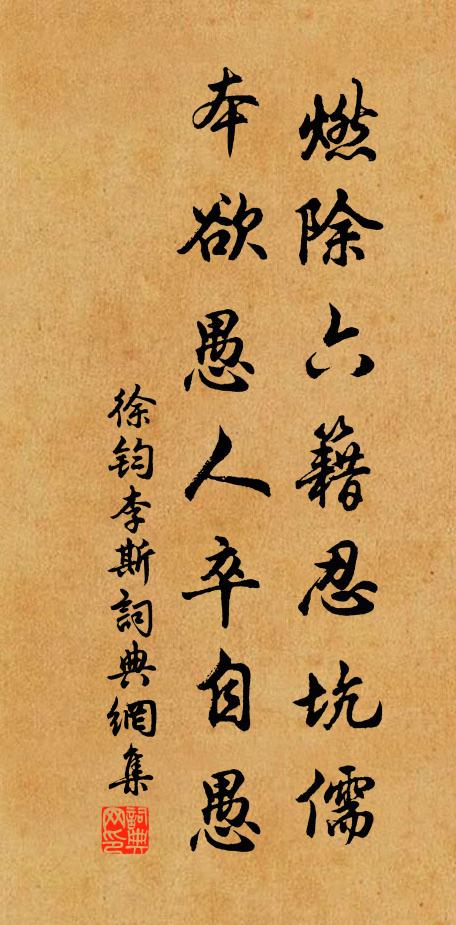 燃除六籍忍坑儒
本欲愚人卒自愚
徐钧李斯詞典網集
詞典网印